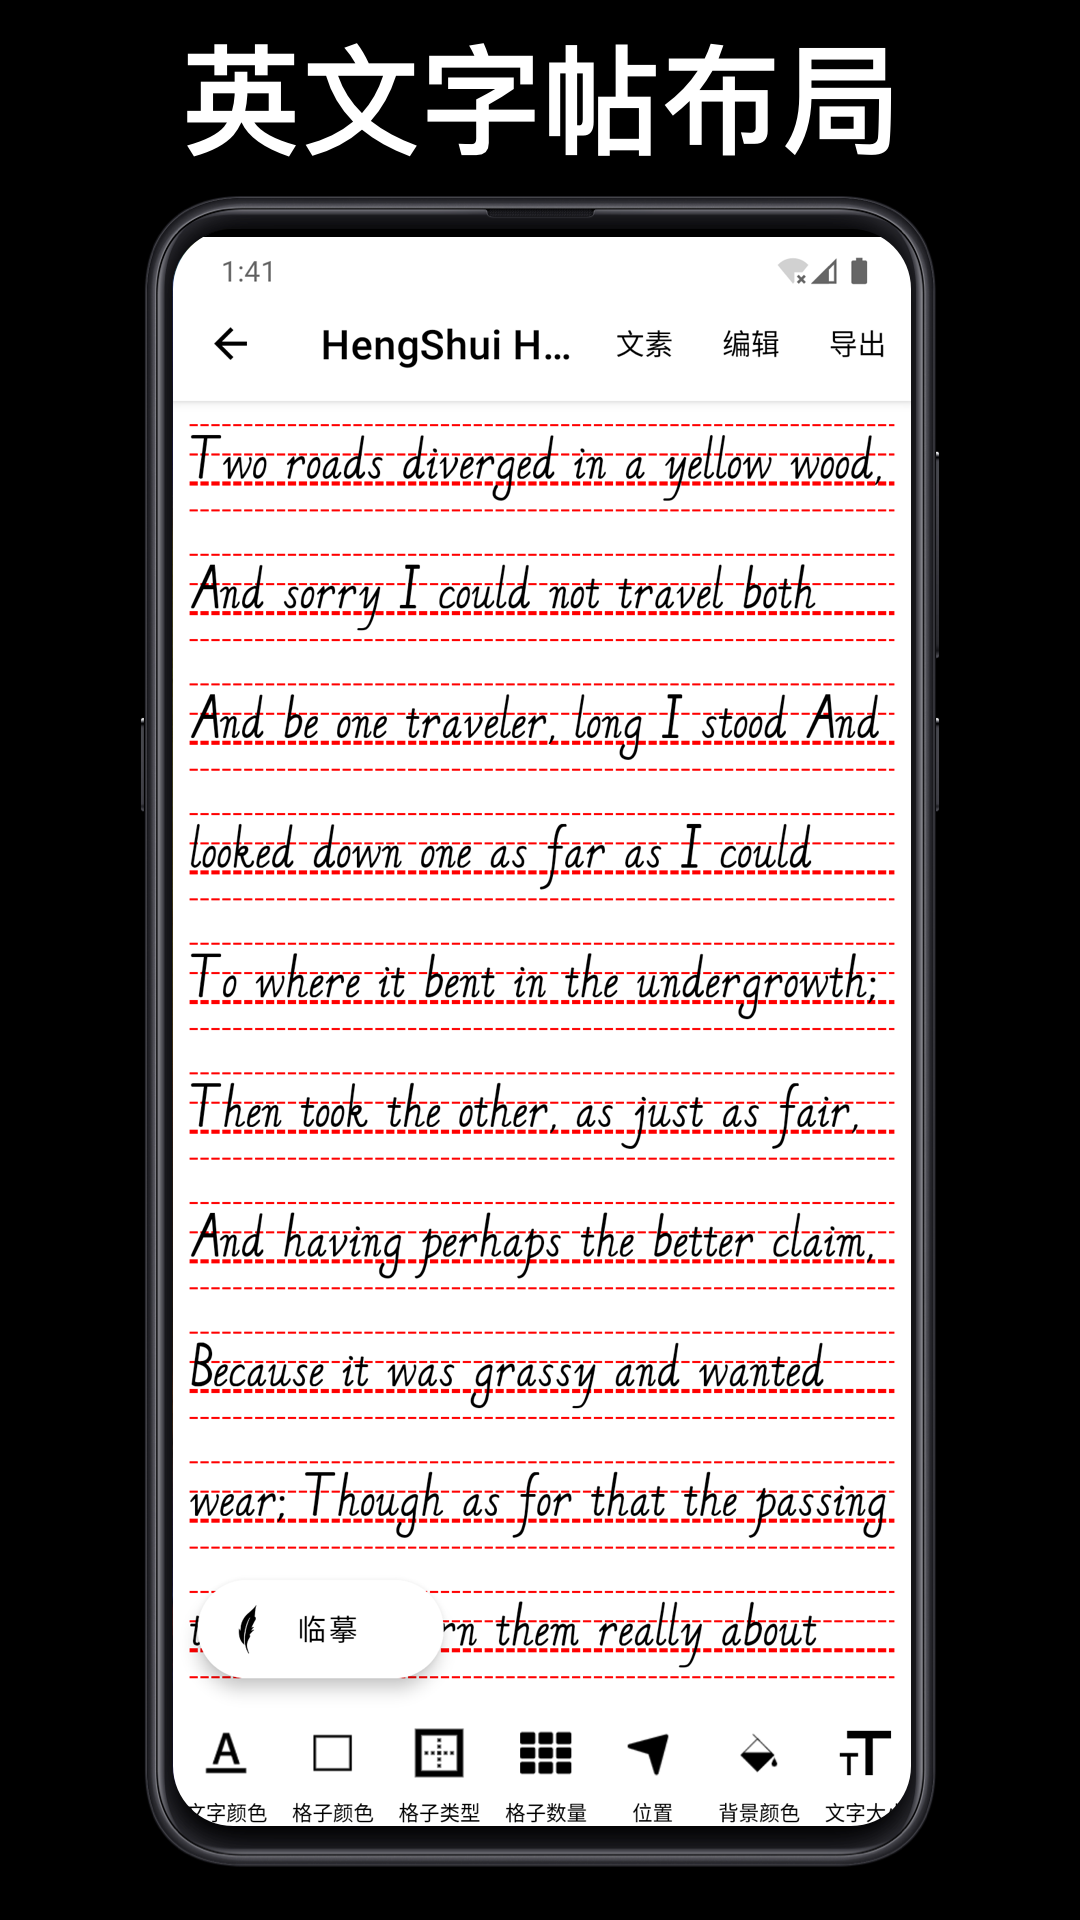 英文字帖布局
1:41
HengShui H... 文素 编辑 导出
Two roads diverged in a yellow wood,
And sorry I could not travel both
And be one traveler, long I stood And
looked down one as far as I could
To where it bent in the undergrowth;
Then took the other, as just as fair,
And having perhaps the better claim,
Because it was grassy and wanted
wear; Though as for that the passing
them really about
临摹
文字颜色 格子颜色 格子类型 格子数量 位置 背景颜色 文字大小